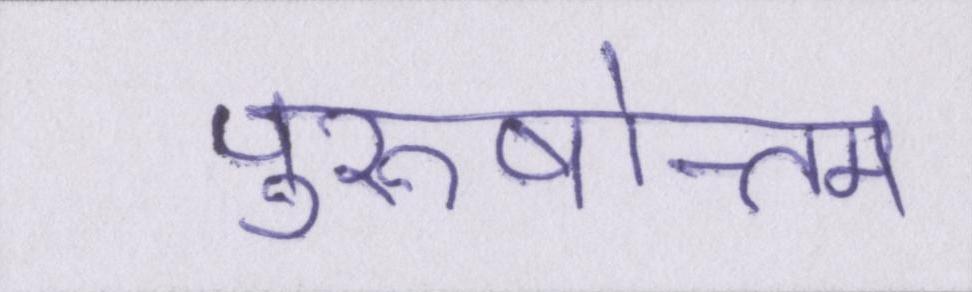 पुरूषोत्तम